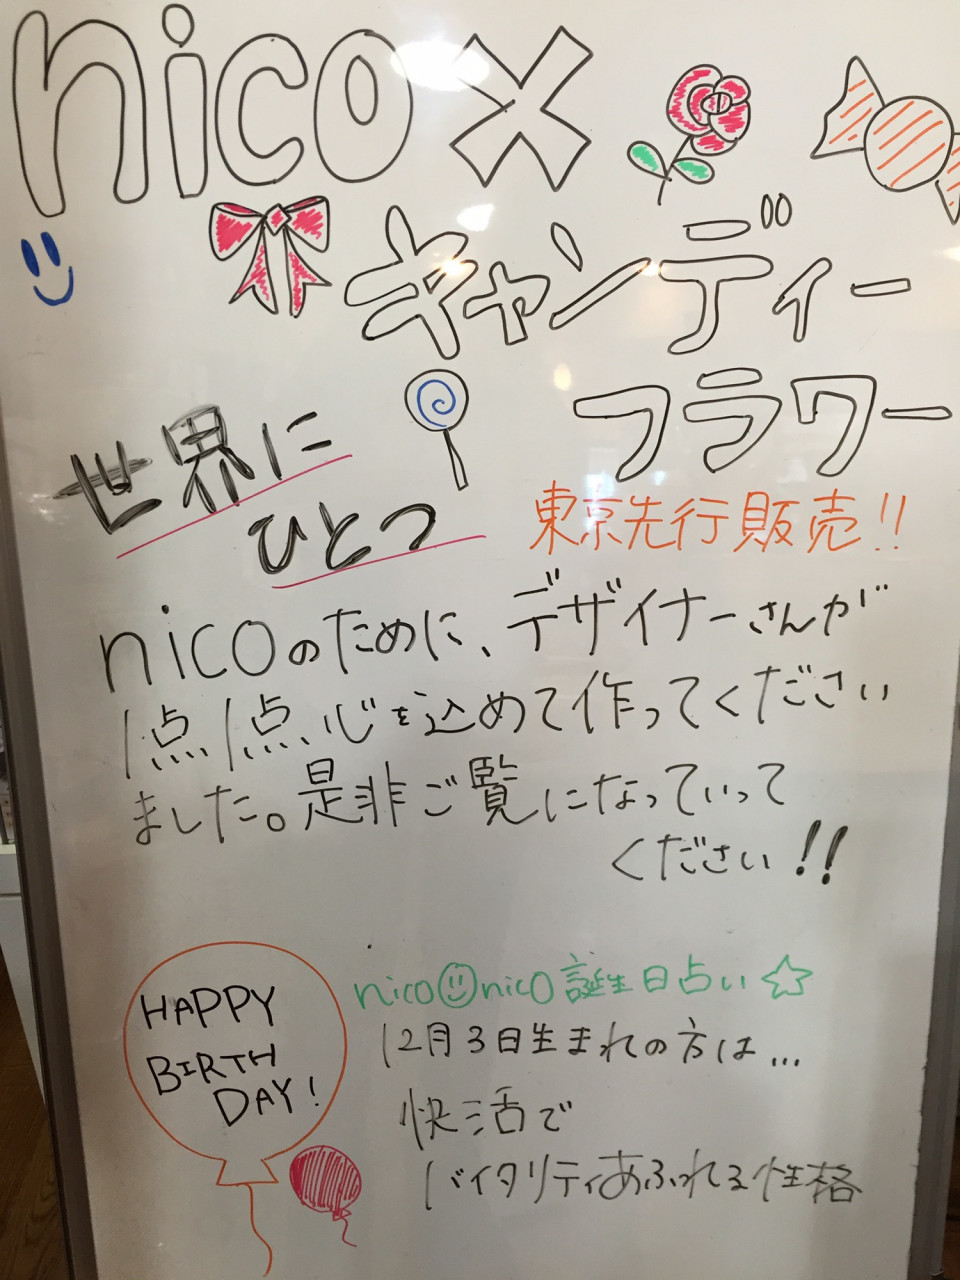 nico×
キャンディー
フラワー
世界に
ひとつ
東京先行販売!!
nicoのために、デザイナーさんが
1点1点心を込めて作ってください
ました。是非ご覧になっていって
ください!!
HAPPY
BIRTH
DAY!
nico☺nico誕生日占い☆
12月3日生まれの方は...
快活で
バイタリティあふれる性格